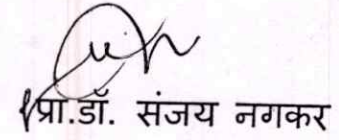 प्रा.डॉ. संजय नगकर